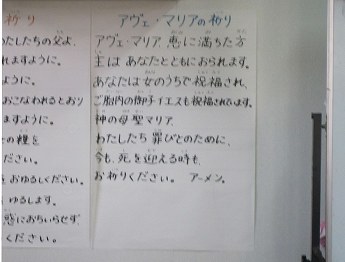 祈り
たしたちの父よ、
れますように。
ように。
おこなわれるとおり
ますように。
の糧を
ださい。
をおゆるしください。
ゆるします。
惑におちいらせず、
ください。
アヴェ・マリアの祈り
アヴェ・マリア、恵みに満ちた方
主はあなたとともにおられます。
あなたは女のうちで祝福され、
ご胎内の御子イエスも祝福されています。
神の母聖マリア、
わたしたち罪びとのために、
今も、死を迎える時も、
お祈りください。 アーメン。